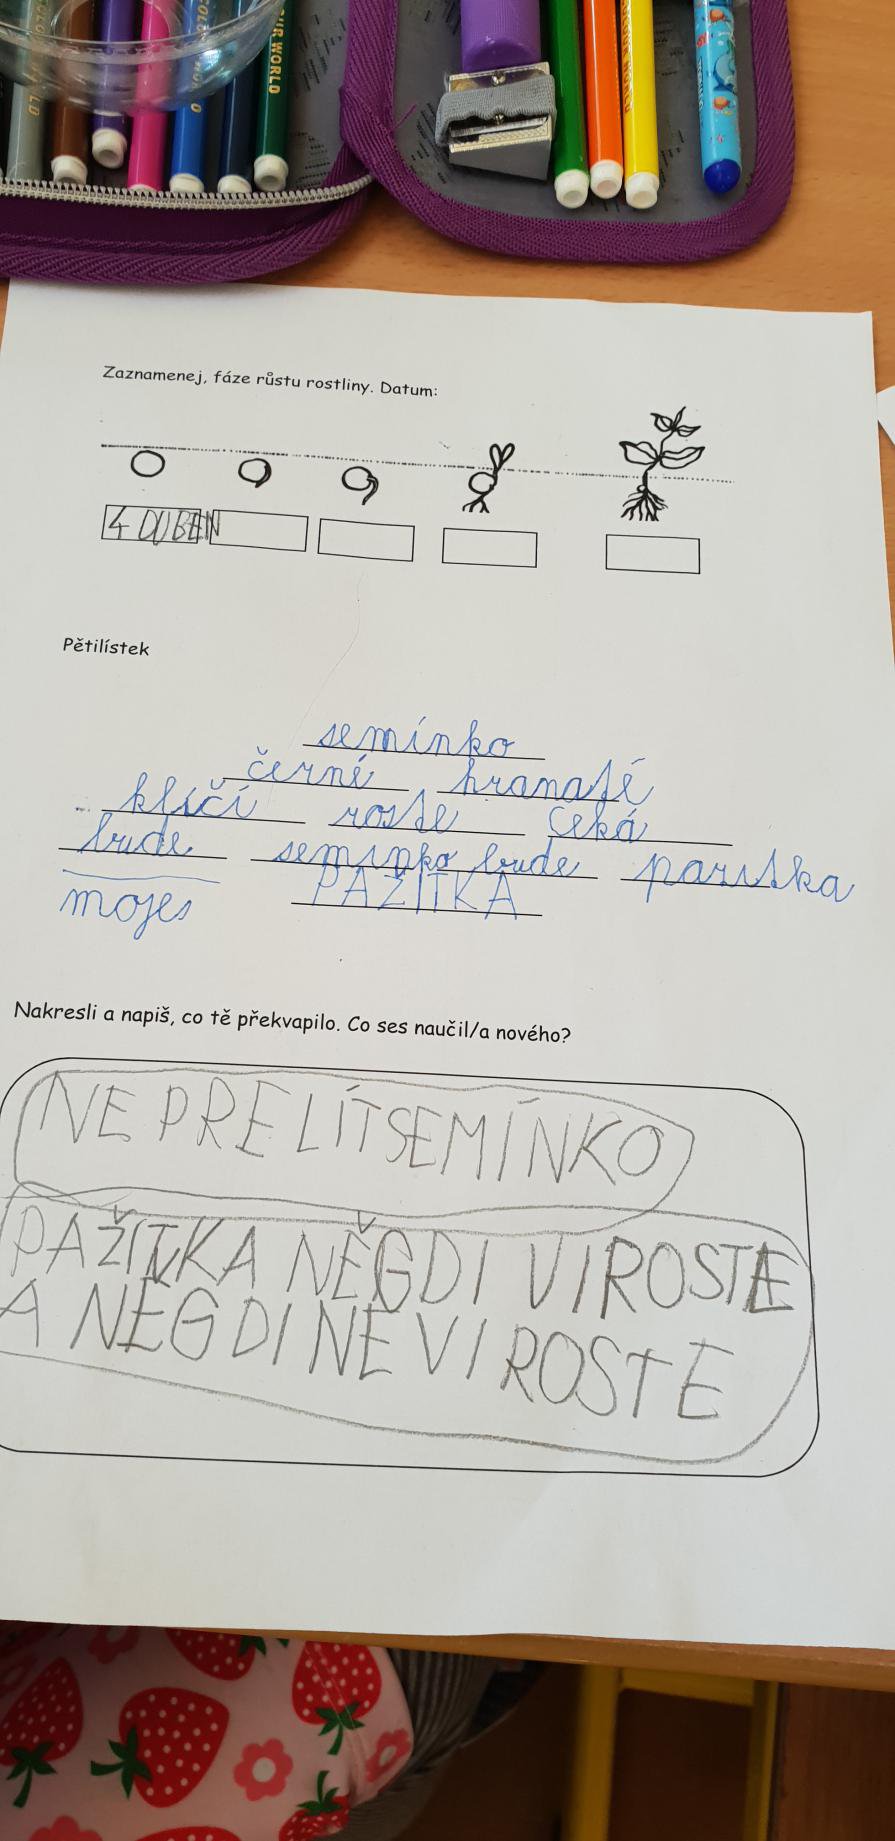 OUR WORLD
Zaznamenej, fáze růstu rostliny. Datum:
4 DUBEN
Pětilístek
semínko
černé hranaté
klíčí roste čeká
bude semínko bude
mojes PAŽITKA
Nakresli a napiš, co tě překvapilo. Co ses naučil/a nového?
NE PRELÍT SEMÍNKO
PAŽITKA NĚGDI VIROSTE
A NĚGDI NE VIROSTE